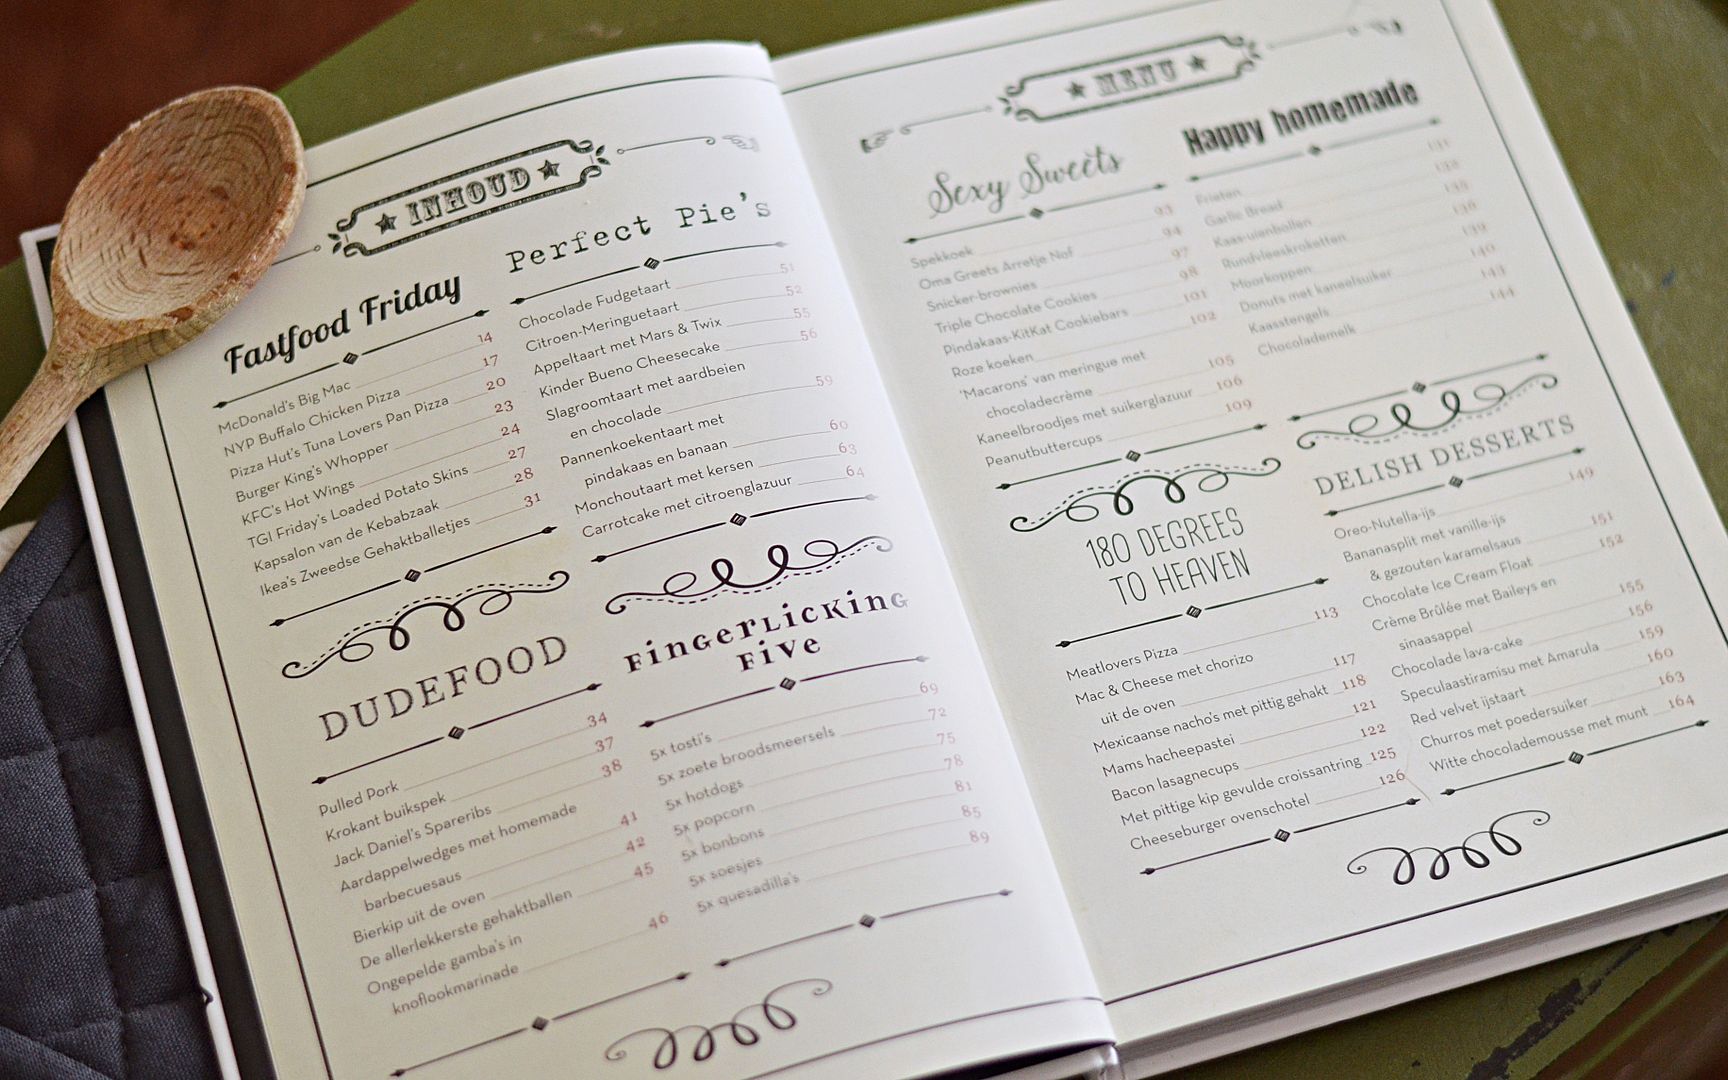 INHOUD
Fastfood Friday
McDonald's Big Mac 14
NYP Buffalo Chicken Pizza 17
Pizza Hut's Tuna Lovers Pan Pizza 20
Burger King's Whopper 23
KFC's Hot Wings 24
TGI Friday's Loaded Potato Skins 27
Kapsalon van de Kebabzaak 28
Ikea's Zweedse Gehaktballetjes 31
DUDEFOOD
Pulled Pork 34
Krokant buikspek 37
Jack Daniel's Spareribs 38
Aardappelwedges met homemade
barbecuesaus 41
Bierkip uit de oven 42
De allerlekkerste gehaktballen 45
Ongepelde gamba's in
knoflookmarinade 46
Perfect Pie's
Chocolade Fudgetaart 51
Citroen-Meringuetaart 52
Appeltaart met Mars & Twix 55
Kinder Bueno Cheesecake 56
Slagroomtaart met aardbeien
en chocolade 59
Pannenkoekentaart met
pindakaas en banaan 60
Monchoutaart met kersen 63
Carrotcake met citroenglazuur 64
FINGERLICKING
FIVE
5x tosti's 69
5x zoete broodsmeersels 72
5x hotdogs 75
5x popcorn 78
5x bonbons 81
5x soesjes 85
5x quesadilla's 89
MENU
Sexy Sweets
Spekkoek 93
Oma Greets Arretje Nof 94
Snicker-brownies 97
Triple Chocolate Cookies 98
Pindakaas-KitKat Cookiebars 101
Roze koeken 102
'Macarons' van meringue met
chocoladecrème 105
Kaneelbroodjes met suikerglazuur 106
Peanutbuttercups 109
180 DEGREES
TO HEAVEN
Meatlovers Pizza 113
Mac & Cheese met chorizo
uit de oven 117
Mexicaanse nacho's met pittig gehakt 118
Mams hacheepastei 121
Bacon lasagnecups 122
Met pittige kip gevulde croissantring 125
Cheeseburger ovenschotel 126
Happy homemade
Frieten 131
Garlic Bread
Kaas-uienbollen
Rundvleeskroketten
Moorkoppen 139
Donuts met kaneelsuiker 140
Kaasstengels 143
Chocolademelk 144
DELISH DESSERTS
Oreo-Nutella-ijs 149
Bananasplit met vanille-ijs
& gezouten karamelsaus 151
Chocolate Ice Cream Float 152
Crème Brûlée met Baileys en
sinaasappel 155
Chocolade lava-cake 156
Speculaastiramisu met Amarula 159
Red velvet ijstaart 160
Churros met poedersuiker 163
Witte chocolademousse met munt 164